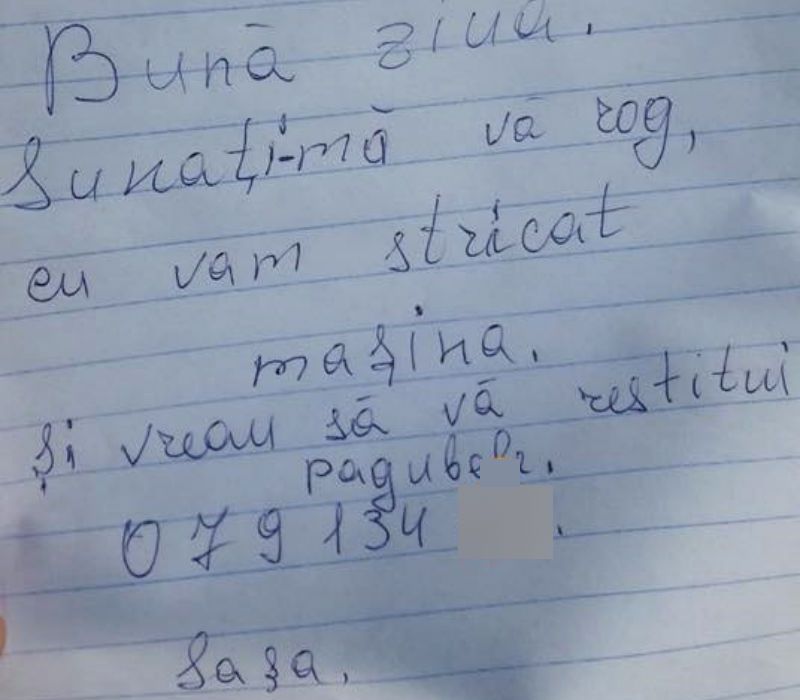 Bună ziua.
Sunați-mă vă rog,
eu vam stricat
mașina.
Și vreau să vă restitui
079 134
Sașa.